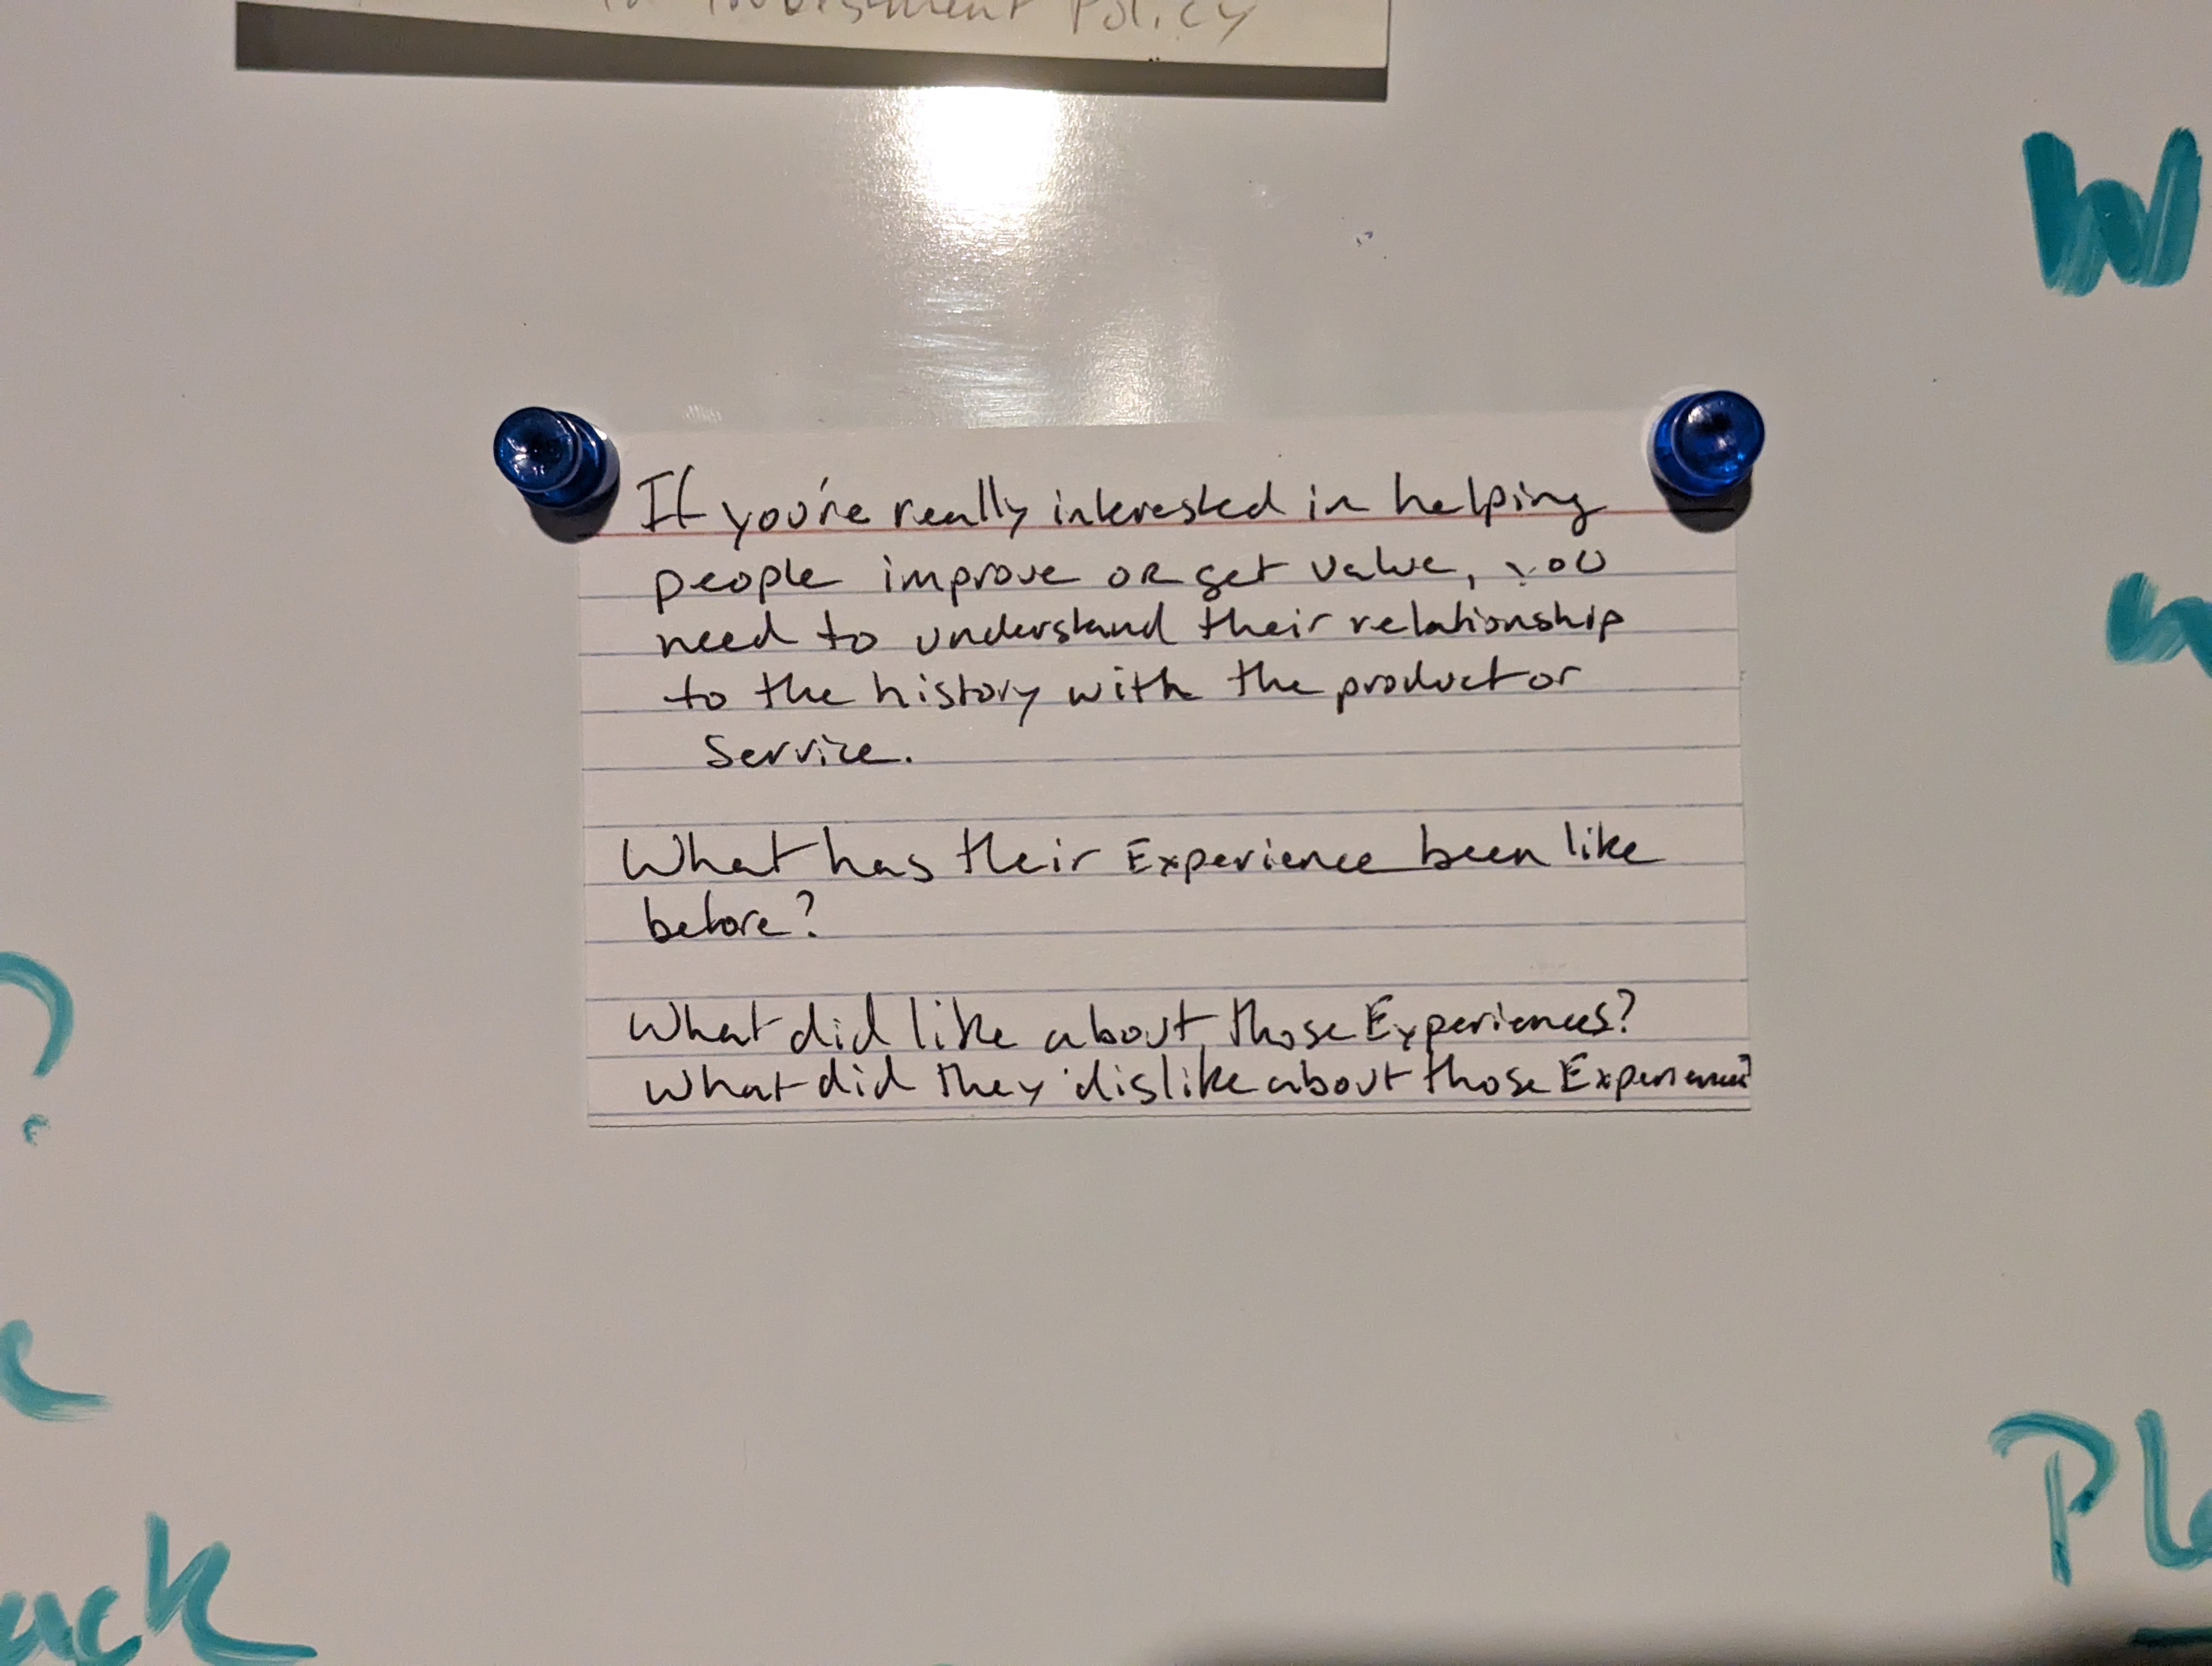 Policy
If you're really interested in helping
people improve or get value, you
need to understand their relationship
to the history with the product or
Service.
What has their Experience been like
before?
What did like about those Experiences?
What did they dislike about those Experiences?
W
?
ack
Pl